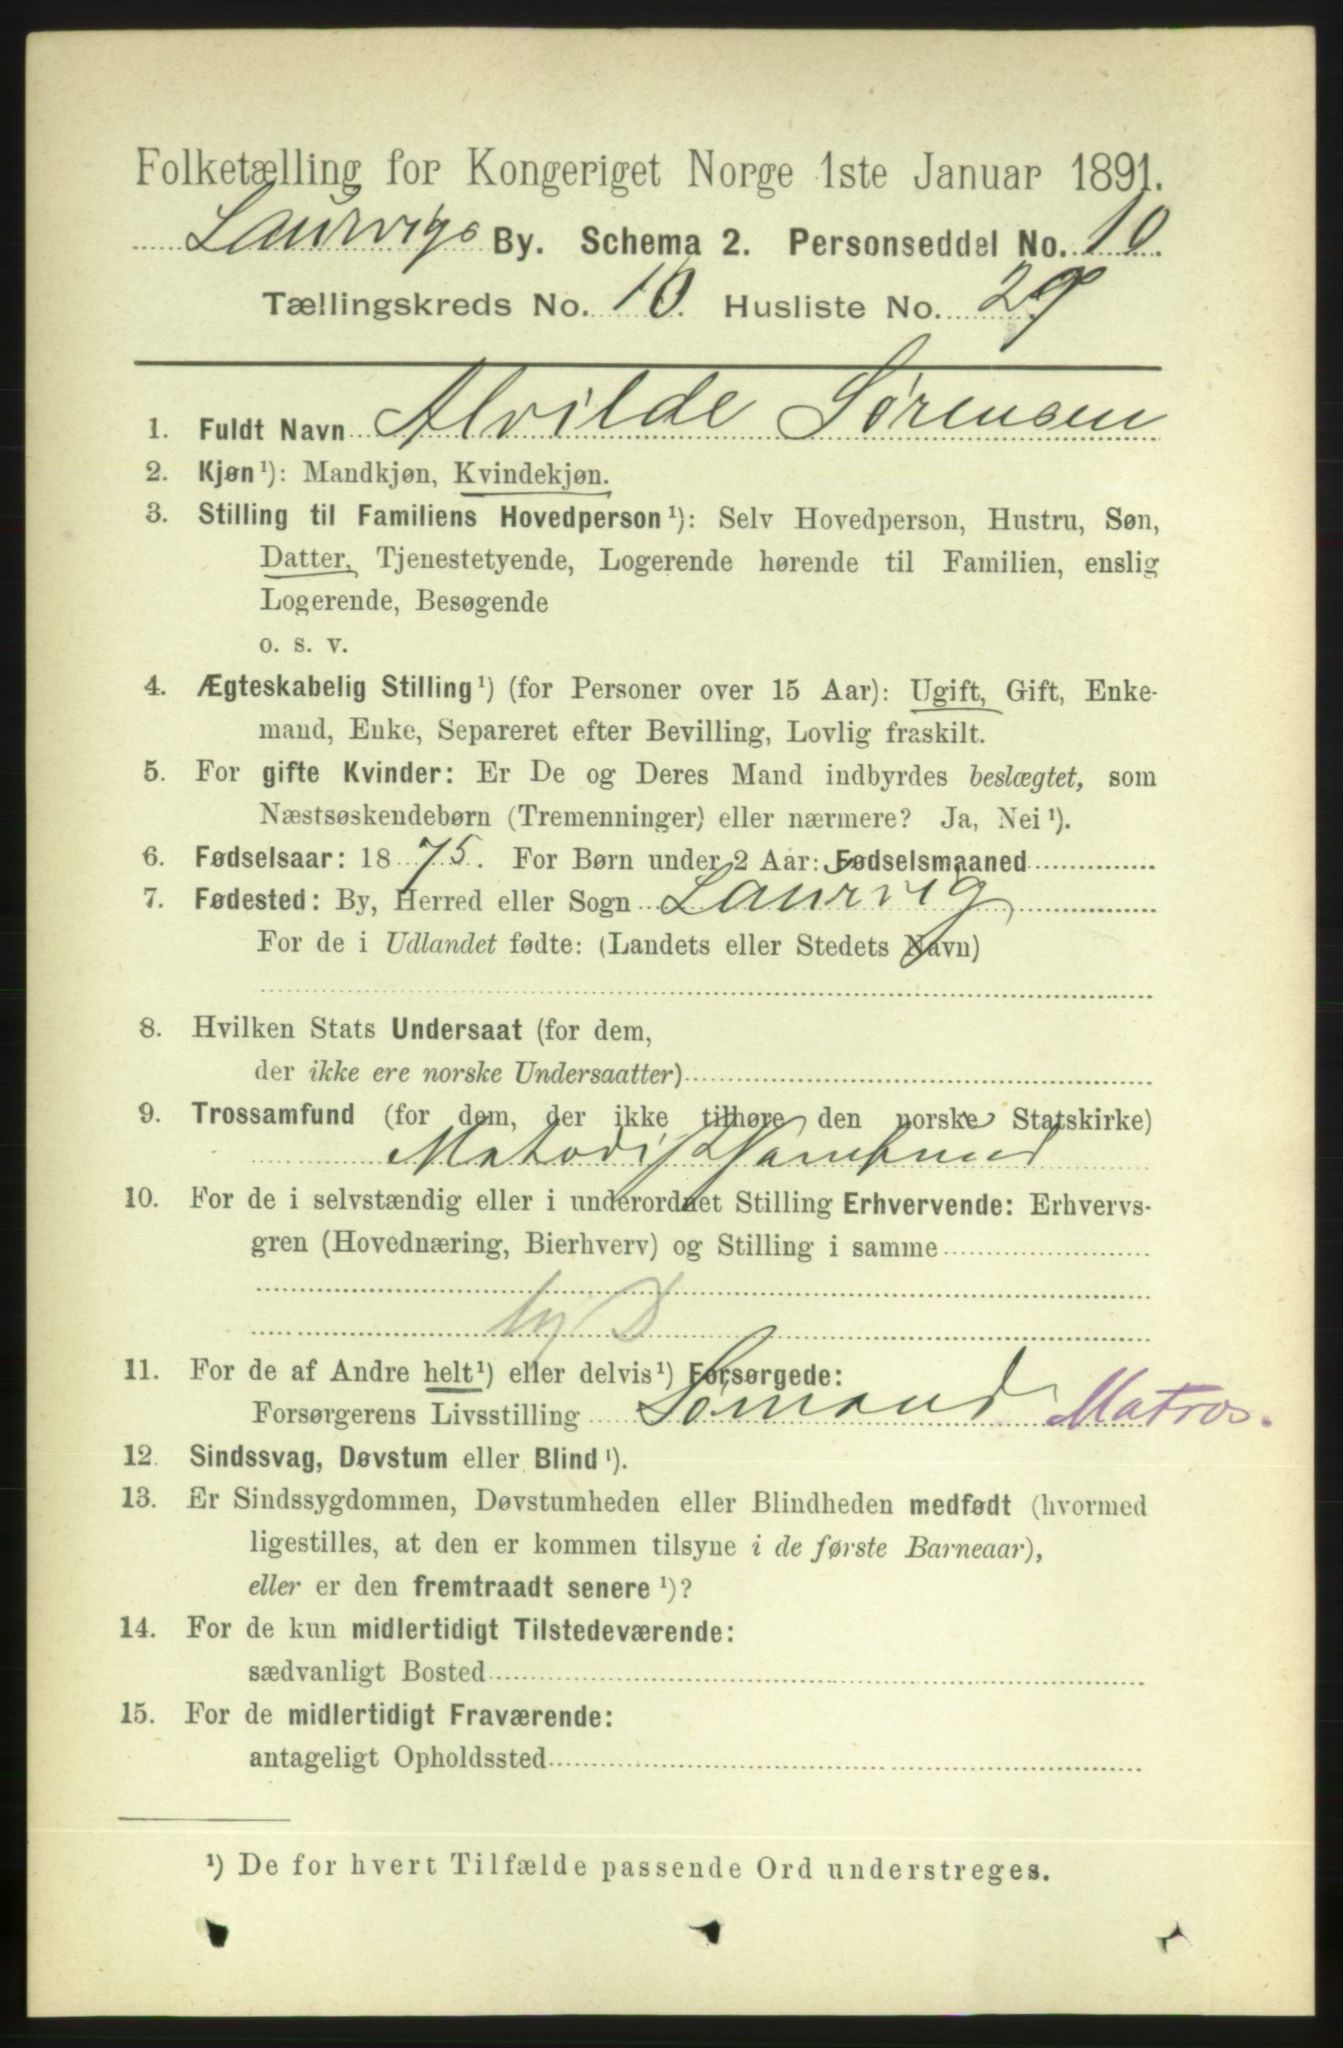 Folketælling for Kongeriget Norge 1ste Januar 1891.
Laurvigs By. Schema 2. Personseddel No. 10.
Tællingskreds No. 10. Husliste No. 29
1. Fuldt Navn Alvilde Sørensen
2. Kjøn¹): Mandkjøn, Kvindekjøn.
3. Stilling til Familiens Hovedperson¹): Selv Hovedperson, Hustru, Søn,
Datter, Tjenestetyende, Logerende hørende til Familien, enslig
Logerende, Besøgende
o. s. v.
4. Ægteskabelig Stilling¹) (for Personer over 15 Aar): Ugift, Gift, Enke-
mand, Enke, Separeret efter Bevilling, Lovlig fraskilt.
5. For gifte Kvinder: Er De og Deres Mand indbyrdes beslægtet, som
Næstsøskendebørn (Tremenninger) eller nærmere? Ja, Nei¹).
6. Fødselsaar: 1875. For Børn under 2 Aar: Fødselsmaaned
7. Fødested: By, Herred eller Sogn Laurvig
For de i Udlandet fødte: (Landets eller Stedets Navn)
8. Hvilken Stats Undersaat (for dem,
der ikke ere norske Undersaatter)
9. Trossamfund (for dem, der ikke tilhøre den norske Statskirke)
10. For de i selvstændig eller i underordnet Stilling Erhvervende: Erhvervs-
gren (Hovednæring, Bierhverv) og Stilling i samme
D
11. For de af Andre helt¹) eller delvis¹) Forsørgede:
Forsørgerens Livsstilling Sømand Matros.
12. Sindssvag, Døvstum eller Blind¹).
13. Er Sindssygdommen, Døvstumheden eller Blindheden medfødt (hvormed
ligestilles, at den er kommen tilsyne i de første Barneaar),
eller er den fremtraadt senere¹)?
14. For de kun midlertidigt Tilstedeværende:
sædvanligt Bosted
15. For de midlertidigt Fraværende:
antageligt Opholdssted
¹) De for hvert Tilfælde passende Ord understreges.